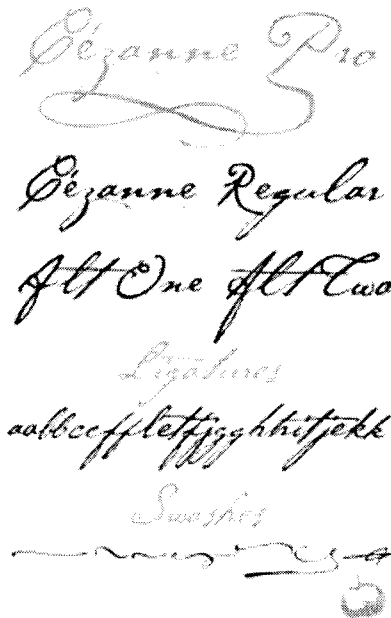 Cézanne Pro
Cézanne Regular
Alt One Alt Two
Ligatures
aabbccffletfjgghhitjekk
Swashes